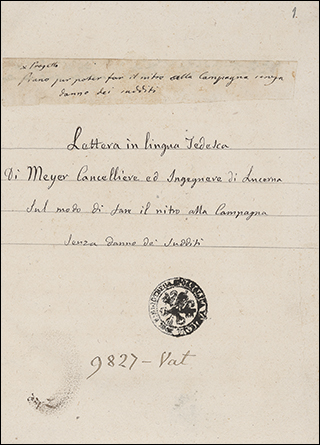 1.
x Progetto
Piano per poter far il nitro alla Campagna senza
danno dei sudditi
Lettera in lingua Tedesca
Di Meyer Cancelliere ed Ingegnere di Lucerna
sul modo di fare il nitro alla Campagna
senza danno dei sudditi
9827-Vat